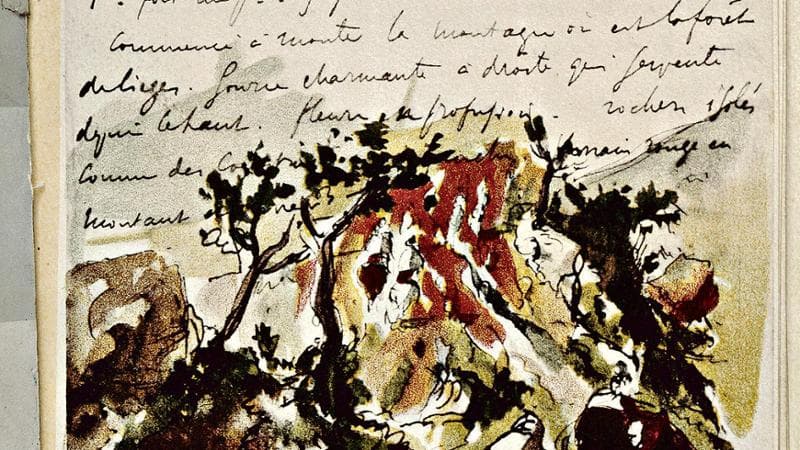 Commencé à monté la montagne où est la forêt
de lieges. Source charmante à droite qui serpente
depuis le haut. fleurs en profusion. rochers isolés
comme des terrain rouge en
montant